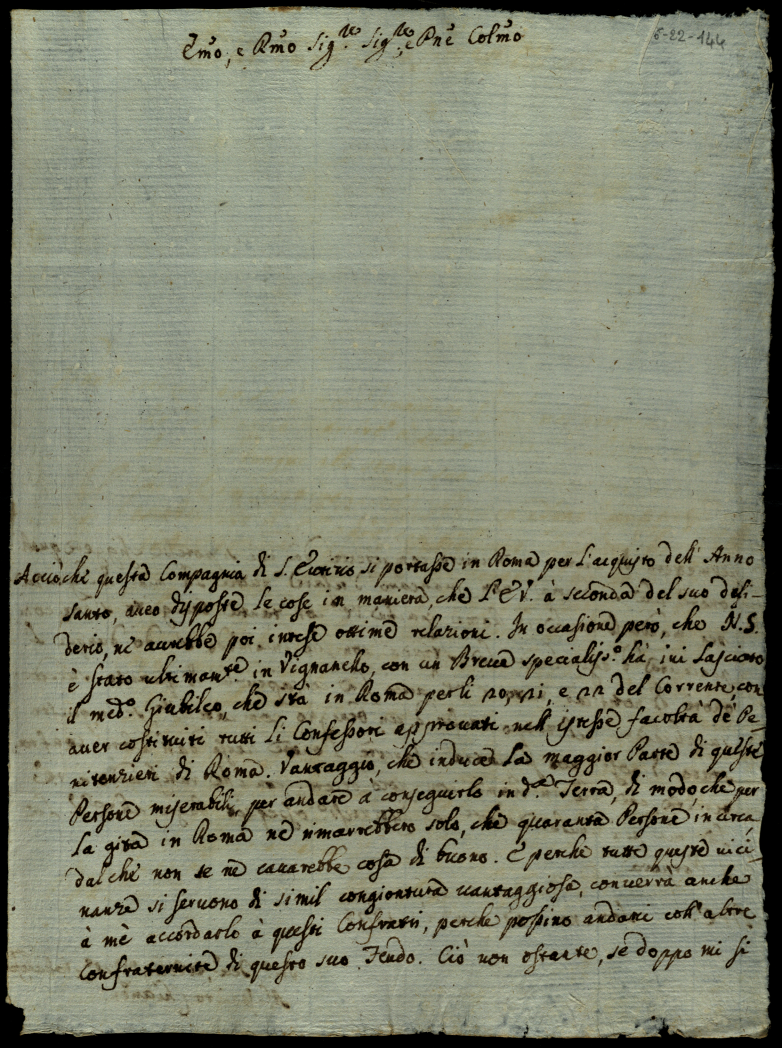 Emo, e Rmo Sig.re Sig.re e Pne Colmo
6-22-144
Acciòche questa Compagnia di S. si portasse in Roma per l'acquisto dell'Anno
santo, aveo disposte le cose in maniera, che l'E.V. à seconda del suo desi-
derio, ne avrebbe poi intese ottime relazioni. In occasione però, che N.S.
è stato ultimam.te in Vignanello, con un Breve specialiss.o hà ivi lasciato
il med.o Giubileo, che stà in Roma perli 20, 21, e 22 del Corrente, con
aver costituiti tutti li Confessori approvati nell'istesse facoltà de' Pe-
nitenzieri di Roma. Vantaggio, che induce la maggior Parte di queste
Persone miserabili per andare à conseguirlo in d.a Terra, di modo, che per
la gita in Roma ne rimarrebbero solo, che quaranta Persone in circa
dal che non se ne cavarebbe cosa di buono. E perche tutte queste vici-
nanze si servono di simil congiontura vantaggiosa, converrà anche
à mè accordarlo à questi Confratri, perche possino andarci coll'altre
Confraternite di questo suo Feudo. Ciò non ostante, se doppo mi si